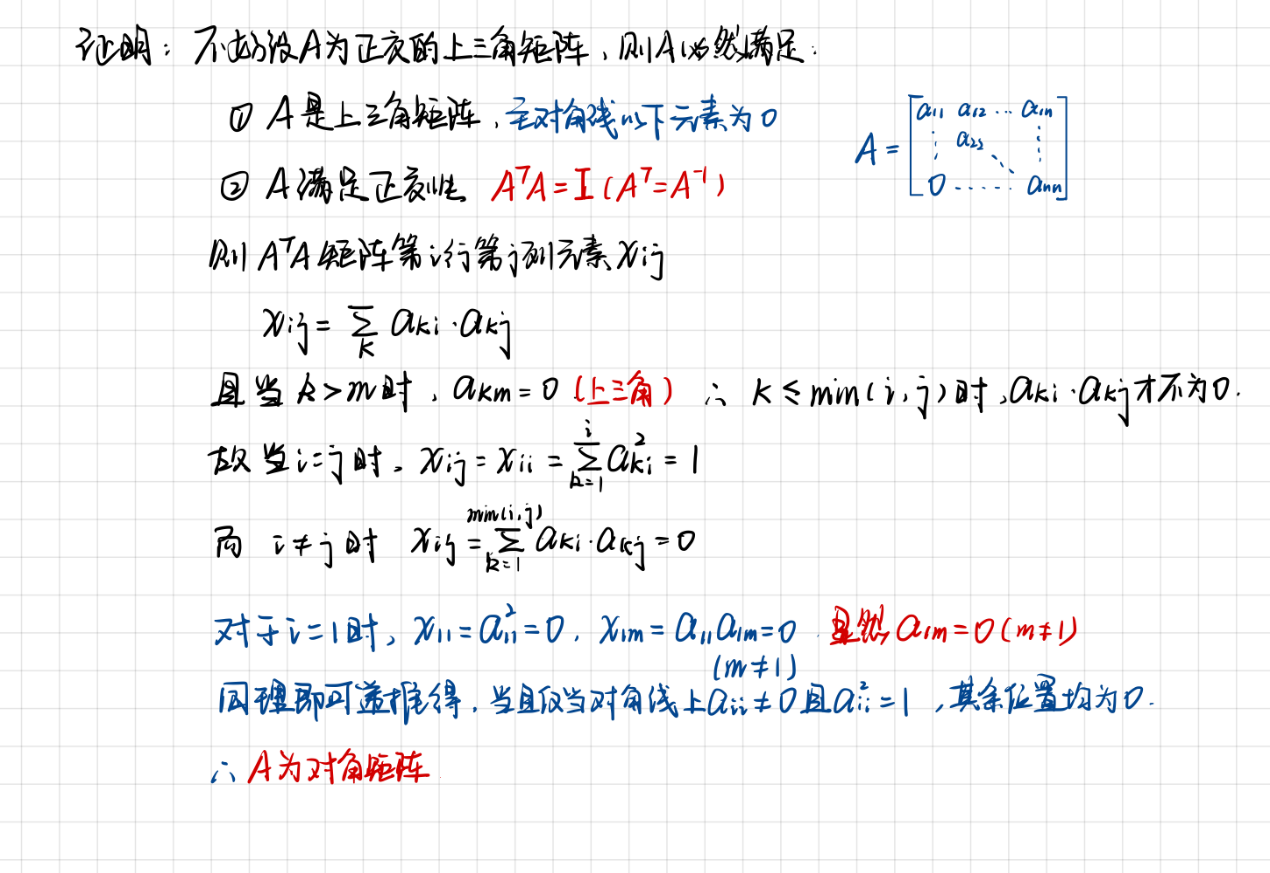 证明：不妨设A为正交的上三角矩阵，则A必然满足：
① A是上三角矩阵，主对角线以下元素为0
② A满足正交性 AᵀA=I (Aᵀ=A⁻¹)
A = [a₁₁ a₁₂ … a₁ₙ
⋮ a₂₂ ⋱ ⋮
0 …… aₙₙ]
则AᵀA矩阵第i行第j列元素xij
xij = ∑_k aki·akj
且当k>m时，akm=0 (上三角) ∴ k≤min(i,j)时,aki·akj才不为0.
故当i=j时，xij = xii = ∑_{k=1}^{i} aki² = 1
而 i≠j时 xij = ∑_{k=1}^{min(i,j)} aki·akj = 0
对于i=1时, x₁₁=a₁₁²=0, x₁m=a₁₁a₁m=0 显然a₁m=0(m≠1)
(m≠1)
同理即可递推得，当且仅当对角线上aii≠0且aii²=1，其余位置均为0.
∴ A为对角矩阵